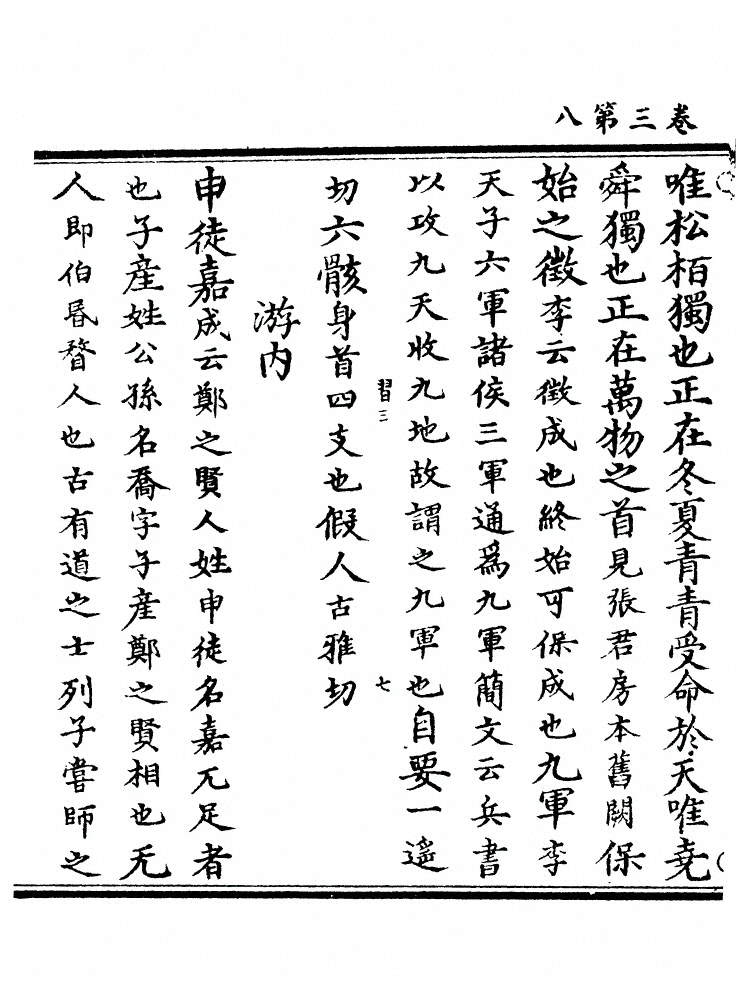 卷三第八
唯松栢獨也正在冬夏青青受命於天唯堯
舜獨也正在萬物之首見張君房本舊闕保
始之徵李云徵成也終始可保成也九軍李
天子六軍諸侯三軍通爲九軍簡文云兵書
以攻九天收九地故謂之九軍也自要一遥
習三 七
切六骸身首四支也假人古雅切
游内
申徒嘉成云鄭之賢人姓申徒名嘉兀足者
也子產姓公孫名喬字子產鄭之賢相也无
人即伯昬瞀人也古有道之士列子嘗師之